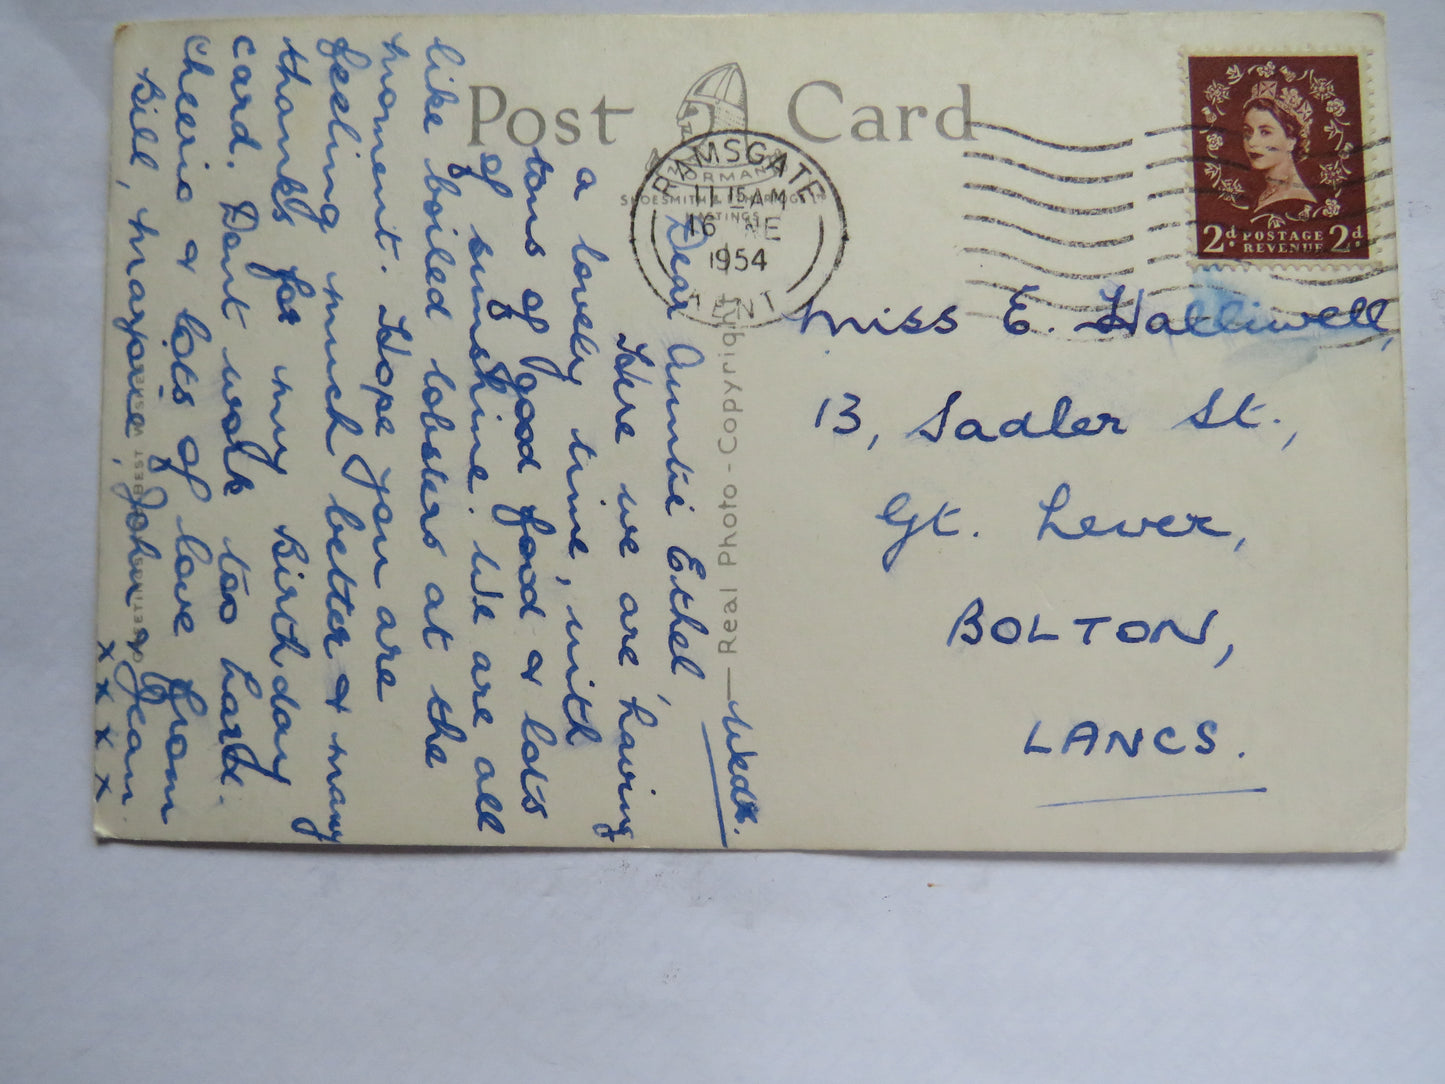 Post Card
NORMAN
SHOESMITH & ETHERIDGE LTD
HASTINGS
RAMSGATE
11 15 AM
16 JNE
1954
KENT
2d POSTAGE REVENUE 2d
Miss E. Halliwell,
13, Sadler St.,
Gt. Lever,
BOLTON,
LANCS.
— Real Photo - Copyright
Wedth.
Dear Auntie Ethel,
Here we are having
a lovely time, with
tons of good food & lots
of sunshine. We are all
like boiled lobsters at the
moment. Hope you are
feeling much better & many
thanks for my Birthday
card. Dont work too hard.
Cheerio & lots of love from
Bill, Marjorie, John & Jean
x x x x